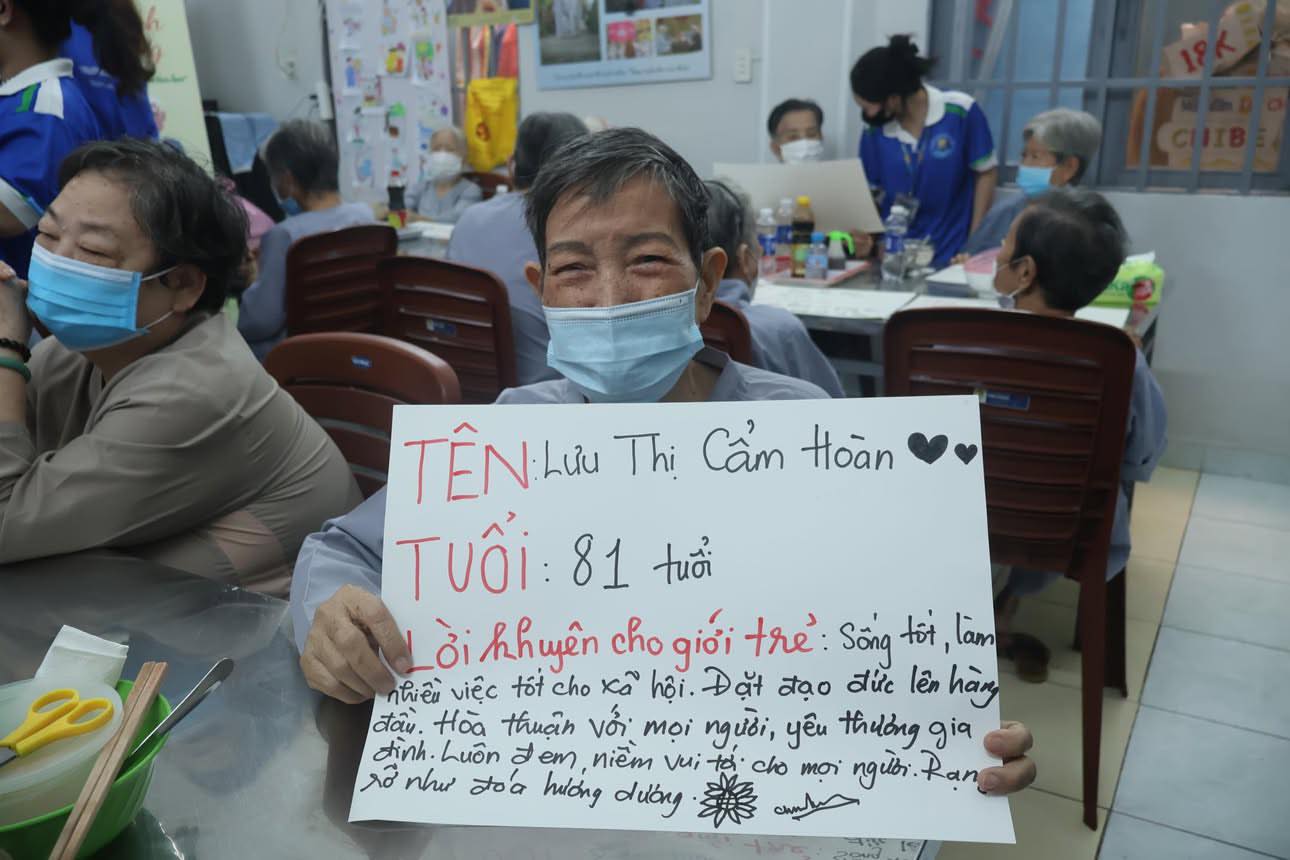 TÊN: Lưu Thị Cẩm Hoàn
TUỔI: 81 tuổi
Lời khuyên cho giới trẻ: Sống tốt, làm
nhiều việc tốt cho xã hội. Đặt đạo đức lên hàng
đầu. Hòa thuận với mọi người, yêu thương gia
đình. Luôn đem, niềm vui tới cho mọi người. Rạn
rỡ như đóa hướng dương.
18K
CHIBE